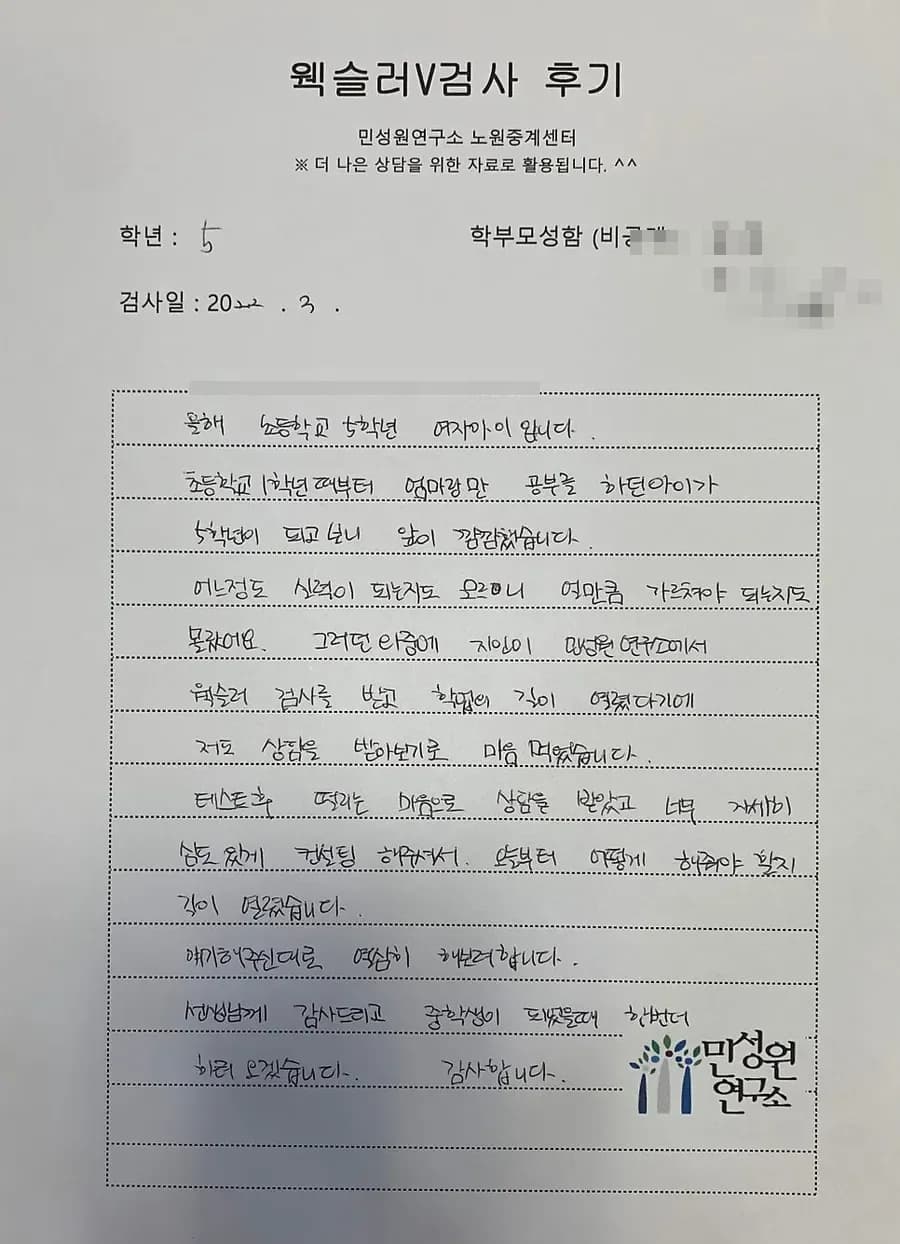 웩슬러V검사 후기
민성원연구소 노원중계센터
※ 더 나은 상담을 위한 자료로 활용됩니다. ^^
학년 : 5 학부모성함 (비공개
검사일 : 2022 . 3 .
올해 초등학교 5학년 여자아이 입니다.
초등학교 1학년때부터 엄마랑만 공부를 하던아이가
5학년이 되고 보니 앞이 깜깜했습니다.
어느정도 실력이 되는지도 모르니 얼만큼 가르쳐야 되는지도
몰랐어요. 그러던 와중에 지인이 민성원 연구소에서
웩슬러 검사를 받고 학업의 길이 열렸다기에
저도 상담을 받아보기로 마음 먹었습니다.
테스트후 떨리는 마음으로 상담을 받았고 너무 자세히
심도 있게 컨설팅 해주셔서. 오늘부터 어떻게 해줘야 할지
길이 열렸습니다.
얘기해주신대로 열심히 해보려합니다.
선생님께 감사드리고 중학생이 되었을때 한번더
하러 오겠습니다. 감사합니다.
민성원
연구소